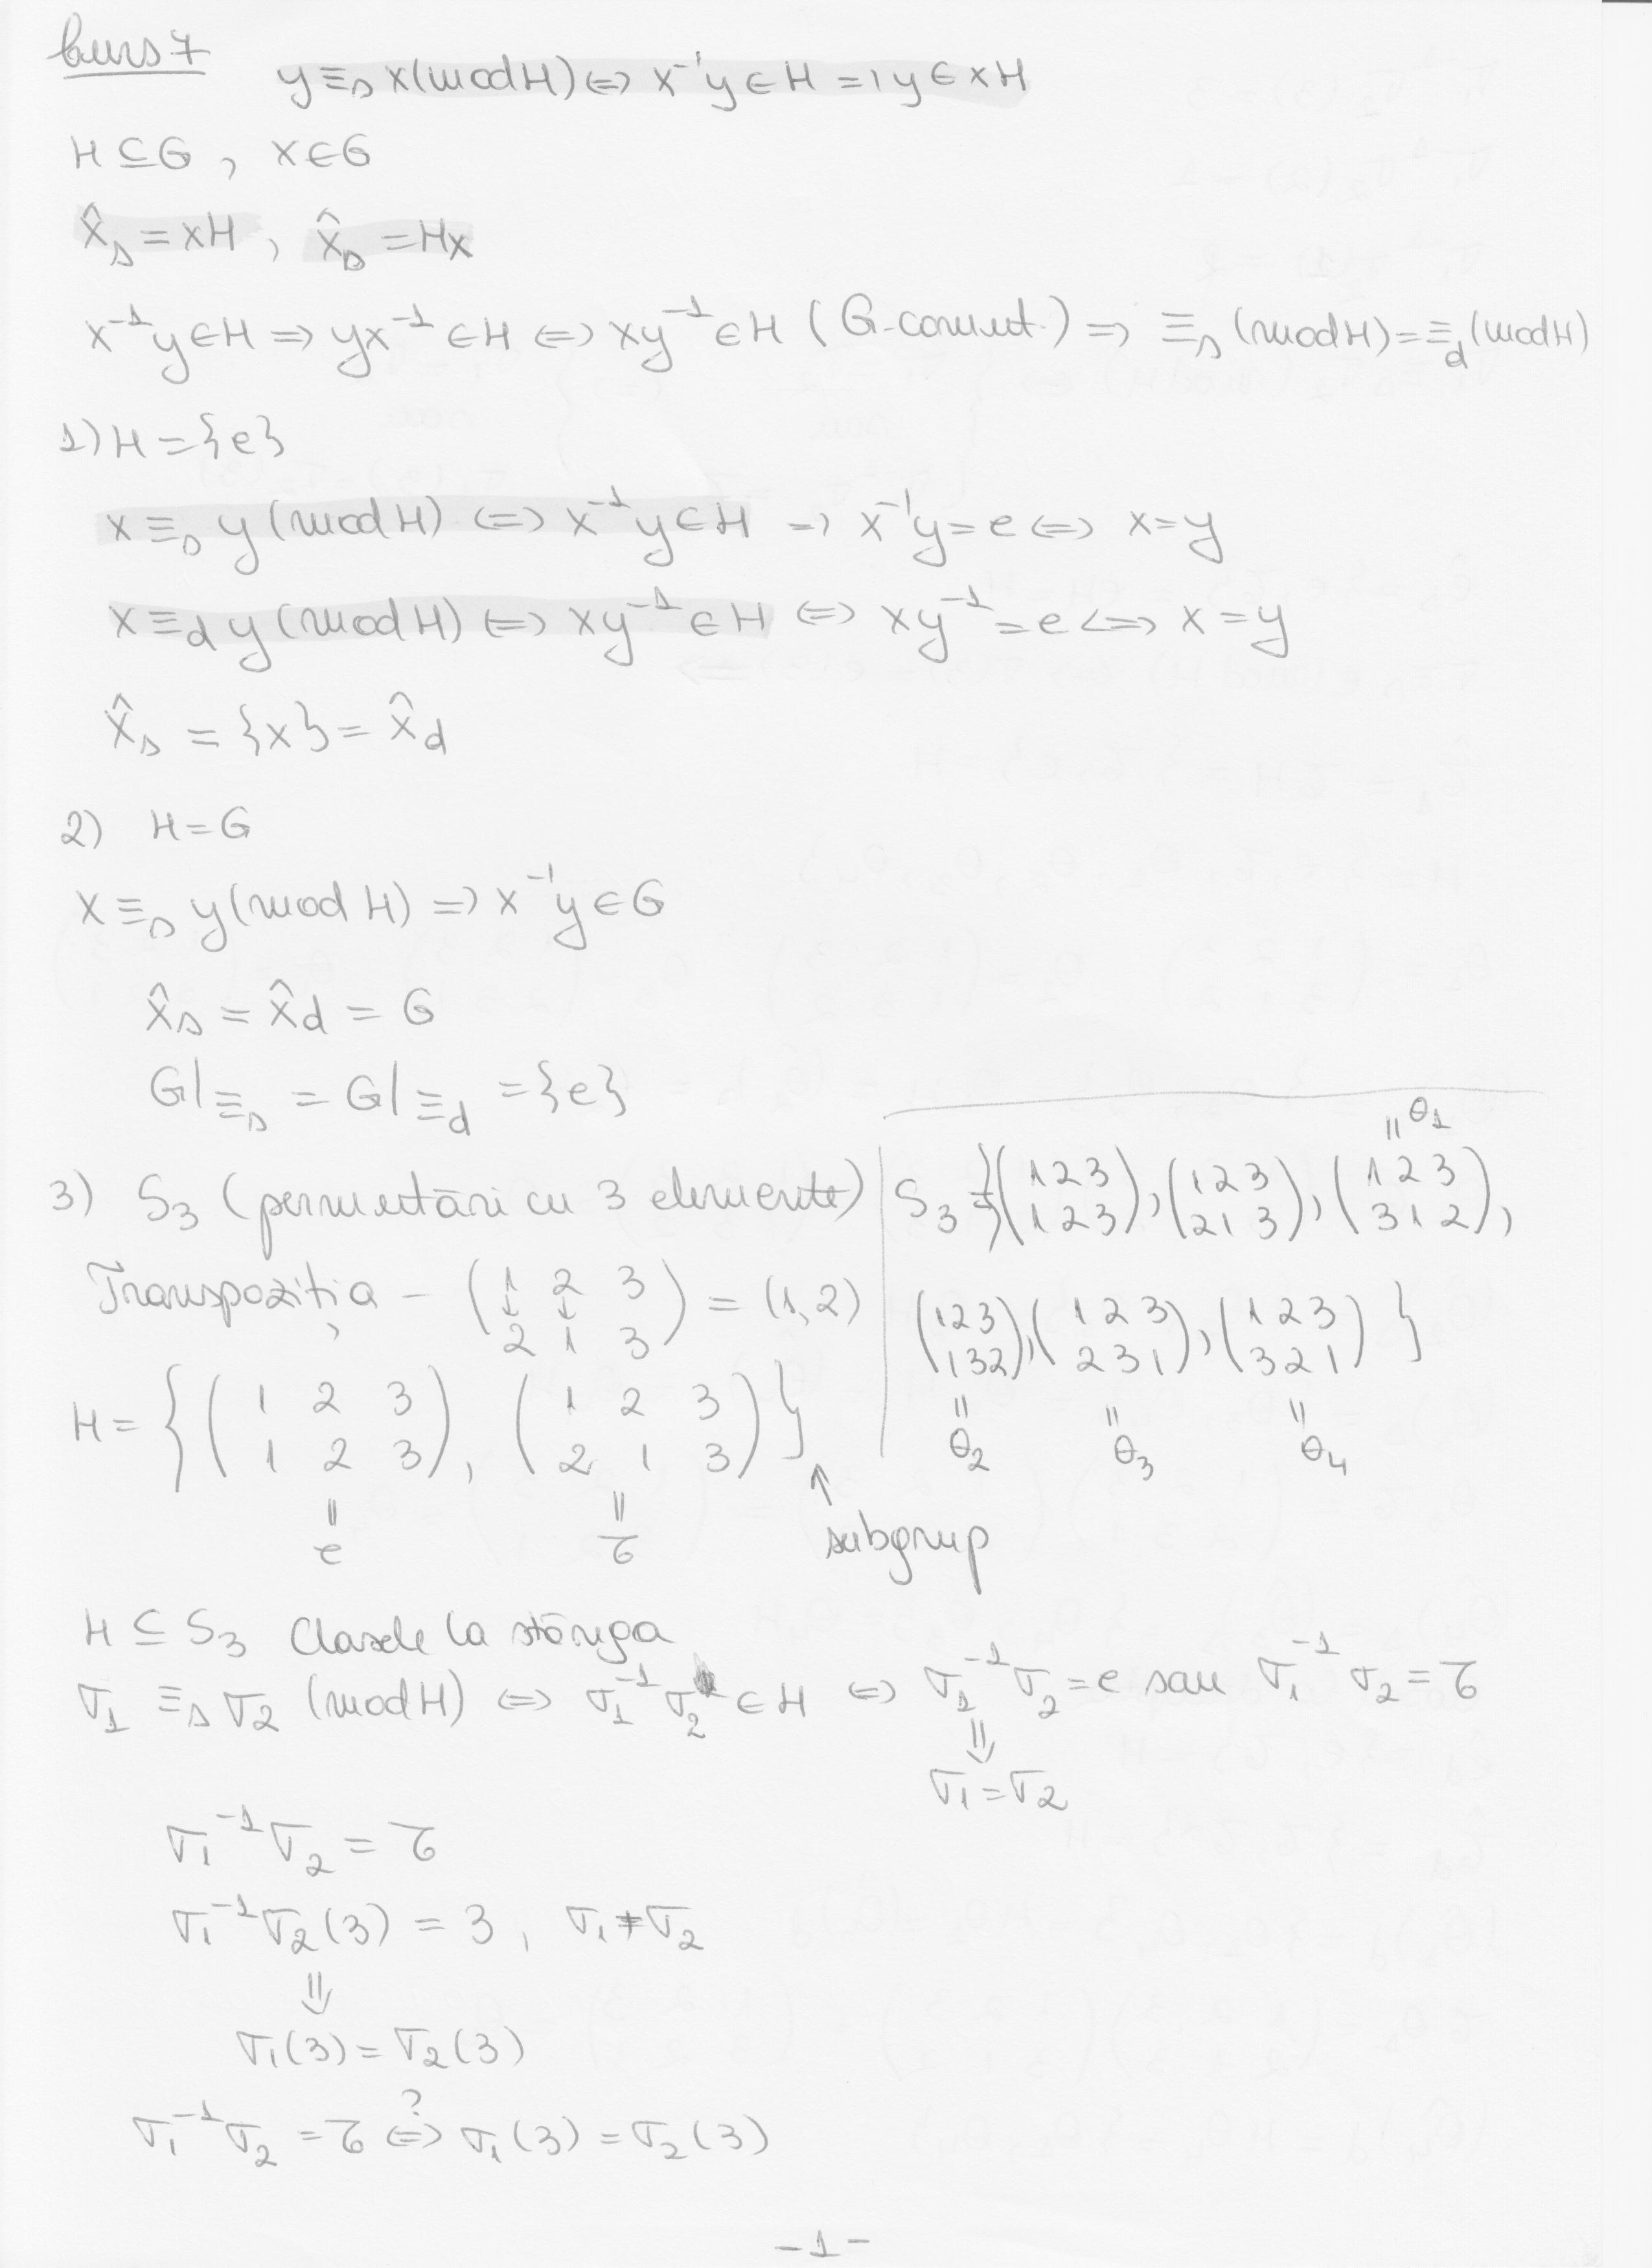 Curs 7
y ≡ₛ x (mod H) ⇔ x⁻¹y ∈ H ⇒ y ∈ xH
H ⊆ G , x ∈ G
x̂ₛ = xH , x̂ₛ = Hx
x⁻¹y ∈ H ⇒ yx⁻¹ ∈ H ⇔ xy⁻¹ ∈ H ( G-comut.) ⇒ ≡ₛ (mod H) = ≡_d (mod H)
1) H = {e}
x ≡ₛ y (mod H) ⇔ x⁻¹y ∈ H ⇒ x⁻¹y = e ⇔ x = y
x ≡_d y (mod H) ⇔ xy⁻¹ ∈ H ⇔ xy⁻¹ = e ⇔ x = y
x̂ₛ = {x} = x̂_d
2) H = G
x ≡ₛ y (mod H) ⇒ x⁻¹y ∈ G
x̂ₛ = x̂_d = G
G|≡ₛ = G|≡_d = {e}
3) S₃ (permutări cu 3 elemente)
Transpoziția - (1 2 3 / 2 1 3) = (1,2)
H = {(1 2 3 / 1 2 3), (1 2 3 / 2 1 3)}
= e = τ ↑ subgrup
= θ₁
S₃ = {(1 2 3 / 1 2 3), (1 2 3 / 2 1 3), (1 2 3 / 3 1 2),
(1 2 3 / 1 3 2), (1 2 3 / 2 3 1), (1 2 3 / 3 2 1) }
= θ₂ = θ₃ = θ₄
H ⊆ S₃ Clasele la stânga
σ₁ ≡ₛ σ₂ (mod H) ⇔ σ₁⁻¹σ₂ ∈ H ⇔ σ₁⁻¹σ₂ = e sau σ₁⁻¹σ₂ = τ
⇓
σ₁ = σ₂
σ₁⁻¹σ₂ = τ
σ₁⁻¹σ₂(3) = 3 , σ₁ ≠ σ₂
⇓
σ₁(3) = σ₂(3)
?
σ₁⁻¹σ₂ = τ ⇔ σ₁(3) = σ₂(3)
-1-